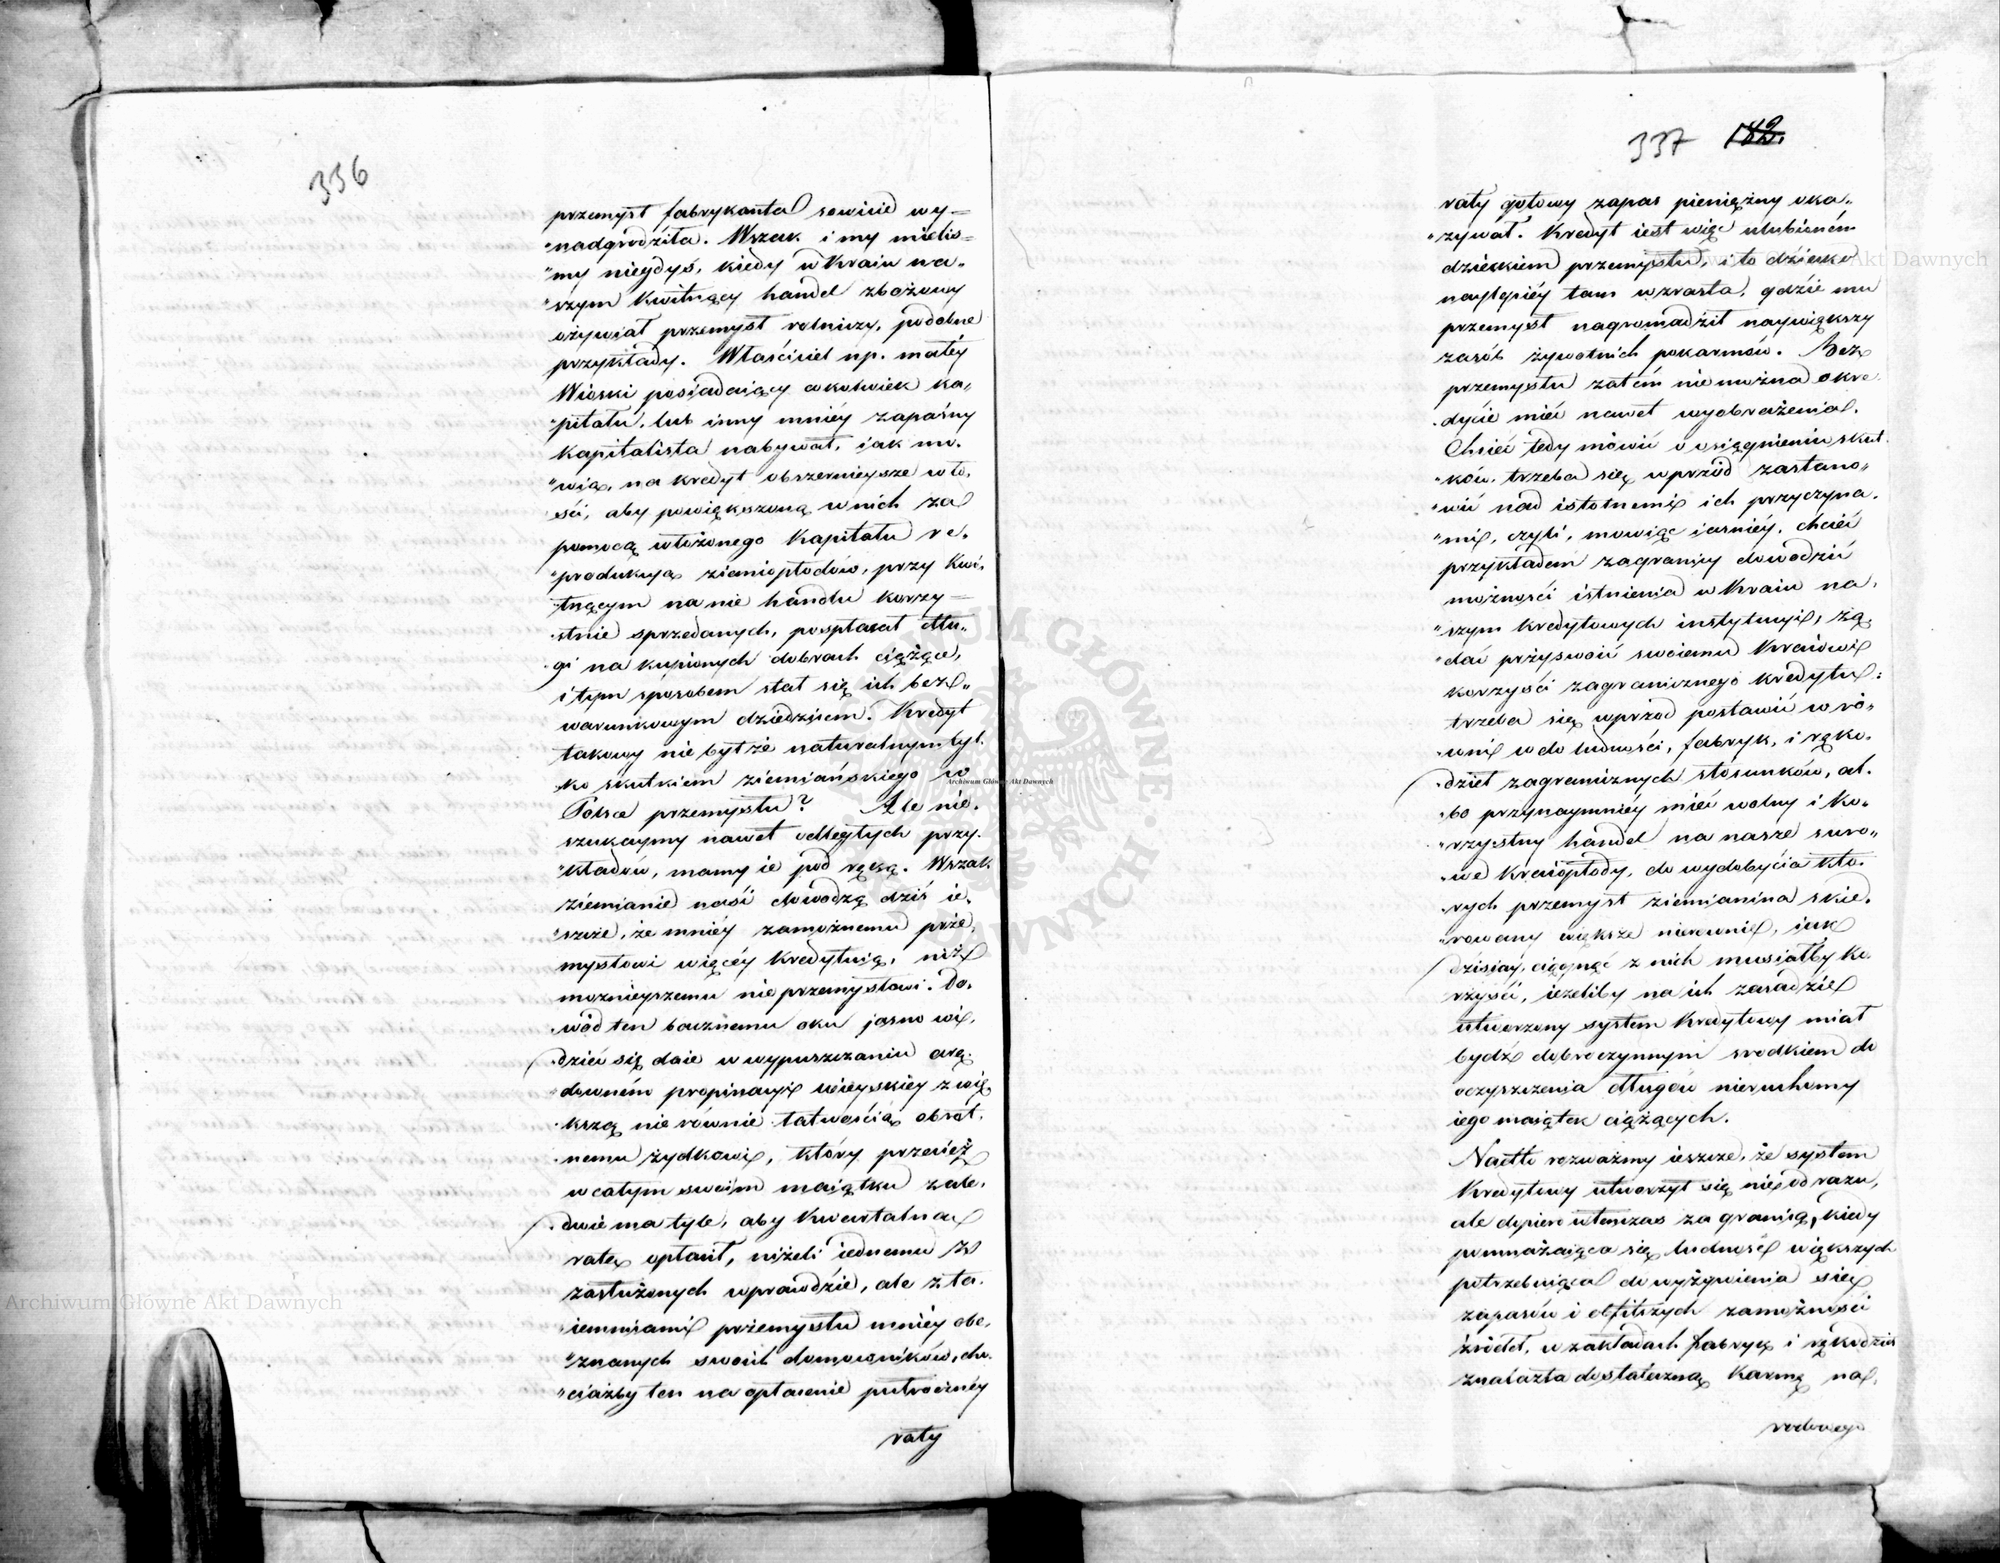 336
przemysł fabrykanta sowicie wy=
"nadgrodziła. Wszak i my mieliś=
"my niegdyś, kiedy w Kraiu na„
"szym kwitnący handel zbożowy
ożywiał przemysł rolniczy, podobne
przykłady. Właściciel np. małéy
Wioski posiadaiący cokolwiek ka„
"pitału, lub inny mniéy zapaśny
kapitalista nabywał, iak mó„
"wią, na kredyt obszernieysze wło„
ści, aby powiększoną w nich za
pomocą włożonego kapitału re„
"produkcyą ziemiopłodów, przy kwi„
tnącym na nie handlu korzy=
"stnie sprzedanych, pospłacał dłu„
"gi na kupionych dobrach ciążące,
i tym sposobem stał się ich bez„
warunkowym dziedzicem. Kredyt
takowy nie byłże naturalnym tyl„
"ko skutkiem ziemiańskiego w
Polsce przemysłu? Ale nie„
szukaymy nawet odległych przy„
"kładów, mamy ie pod ręką. Wszak
ziemianie nasi dowodzą dziś ie„
"szcze, że mniéy zamożnemu prze„
mysłowi więcéy kredytuią, niż
możnieyszemu nie przemysłowi. Do„
"wód ten bacznemu oku jasno wi„
"dzieć się daie w wypuszczaniu arę„
"downém propinacyi wieyskiéy z wię
"kszą nierównie łatwością obrot„
"nemu żydkowi, który przecież
w całym swoim maiątku zale„
"dwie ma tyle, aby kwartalną
ratę opłacił, niżeli iednemu z
zasłużonych wprawdzie, ale z ta„
"iemnicami przemysłu mniéy obe„
"znanych swoich domowników, cho„
"ciażby ten na opłacenie półroczney
raty
337 182.
raty gotowy zapas pieniężny oka„
"zywał. Kredyt iest więc ulubioném
dzieckiem przemysłu, i to dziecko
naylepiéy tam wzrasta, gdzie mu
przemysł nagromadził naywiększy
zasób żywotnich pokarmów. Bez
przemysłu zatém nie można o kre„
dycie mieć nawet wyobrażenia.
Chcieć tedy mówić o osiągnieniu skut„
"ków, trzeba się wprzód zastano„
"wić nad istotnemi ich przyczyna„
"mi, czyli, mowiąc iaśniéy, chcieć
przykładem zagranicy dowodzić
możności istnienia w Kraiu na„
"szym kredytowych instytucyi, żą„
"dać przyswoić swoiemu Kraiowi
korzyści zagranicznego kredytu:
trzeba się wprzód postawić w ró„
"wni w do ludności, fabryk, i ręko„
"dzieł zagranicznych stosunków, al„
"bo przynaymniéy mieć wolny i ko„
"rzystny handel na nasze suro„
"we kraiopłody, do wydobycia któ„
"rych przemysł ziemianina skie„
"rowany większe nierównie, iak
dzisiay, ciągnąć z nich musiałby ko„
rzyści, ieżeliby na ich zasadzie
utworzony system kredytowy miał
bydź dobroczynnym srodkiem do
oczyszczenia długów nieruchomy
iego maiątek ciążących.
Nadto rozważmy ieszcze, że system
kredytowy utworzył się nie od razu,
ale dopiero wtenczas za granicą, kiedy
pomnażaiąca się ludność większych
potrzebuiąca do wyżywienia się
zapasów i obfitszych zamożności
źródeł, w zakładach fabryk i rękodzieł
znalazła dostateczną karmę na„
rodowego
Archiwum Główne Akt Dawnych
Archiwum Główne Akt Dawnych
Akt Dawnych